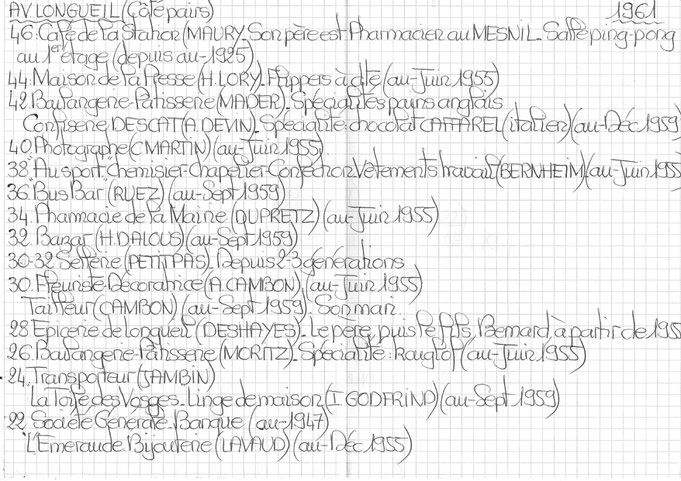 AV. LONGUEIL (Côté pairs) 1961
46. Café de la Station (MAURY. Son père est Pharmacien au MESNIL. Salle ping-pong
au 1er étage (depuis au-1925)
44. Maison de la Presse (H. LORY). Flippers à côté (au-Juin 1955)
42. Boulangerie-Pâtisserie (MADER). Spécialités pains anglais
Confiserie DESCAT (A. DEVIN). Spécialité: chocolat CAFFAREL (italien) (au-Déc 1959)
40. Photographe (C MARTIN) (au-Juin 1955)
38. "Au sport". Chemisier-Chapelier-Confection Vêtements travail (BERNHEIM) (au-Juin 1955
36. "Bus Bar" (RUEZ) (au-Sept 1959)
34. Pharmacie de la Mairie (DUPRETZ) (au-Juin 1955)
32. Bazar (H. DALOUS) (au-Sept 1959)
30-32 Sellerie (PETITPAS). Depuis 2-3 générations
30. Fleuriste-Décoratrice (A. CAMBON) (au-Juin 1955)
Tailleur (CAMBON) (au-Sept 1959) Son mari
28 Epicerie de Longueil (DESHAYES). Le père, puis le fils Bernard à partir de 195
26. Boulangerie-Pâtisserie (MORITZ). Spécialité: kouglof (au-Juin 1955)
24. Transporteur (JAMBIN)
La Toile des Vosges. Linge de maison (I. GODFRIND) (au-Sept 1959)
22 Société Générale. Banque (au-1947)
"L'Emeraude. Bijouterie (LAVAUD) (au-Déc 1955)